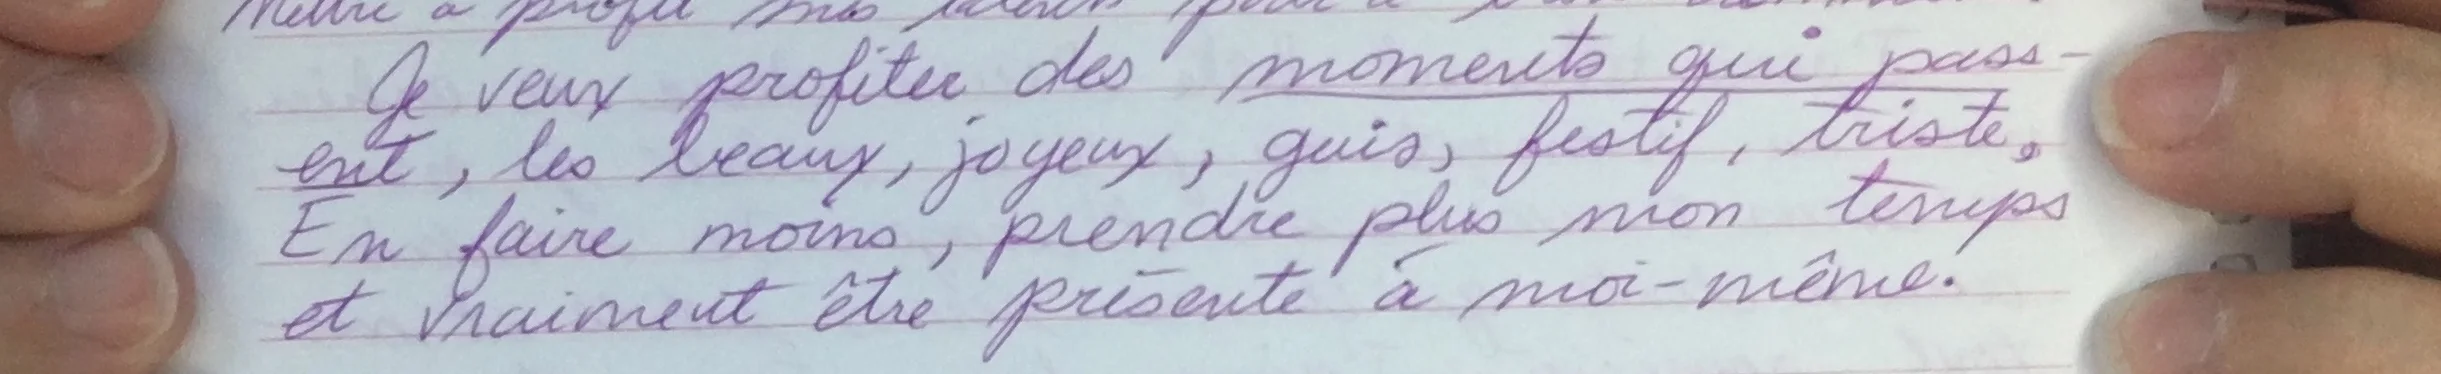 Mettre à profit mes
Je veux profiter des moments qui pass-
ent, les beaux, joyeux, guis, festif, triste.
En faire moins, prendre plus mon temps
et vraiment être présente à moi-même.